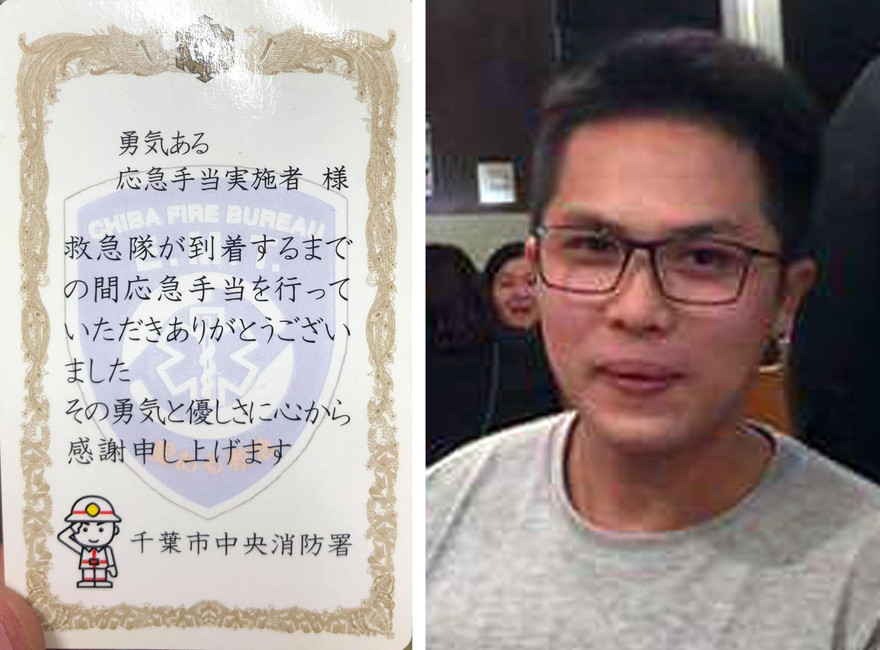 勇気ある
応急手当実施者 様
CHIBA FIRE BUREAU
救急隊が到着するまで
の間応急手当を行って
いただきありがとうござい
ました
その勇気と優しさに心から
感謝申し上げます
千葉市中央消防署